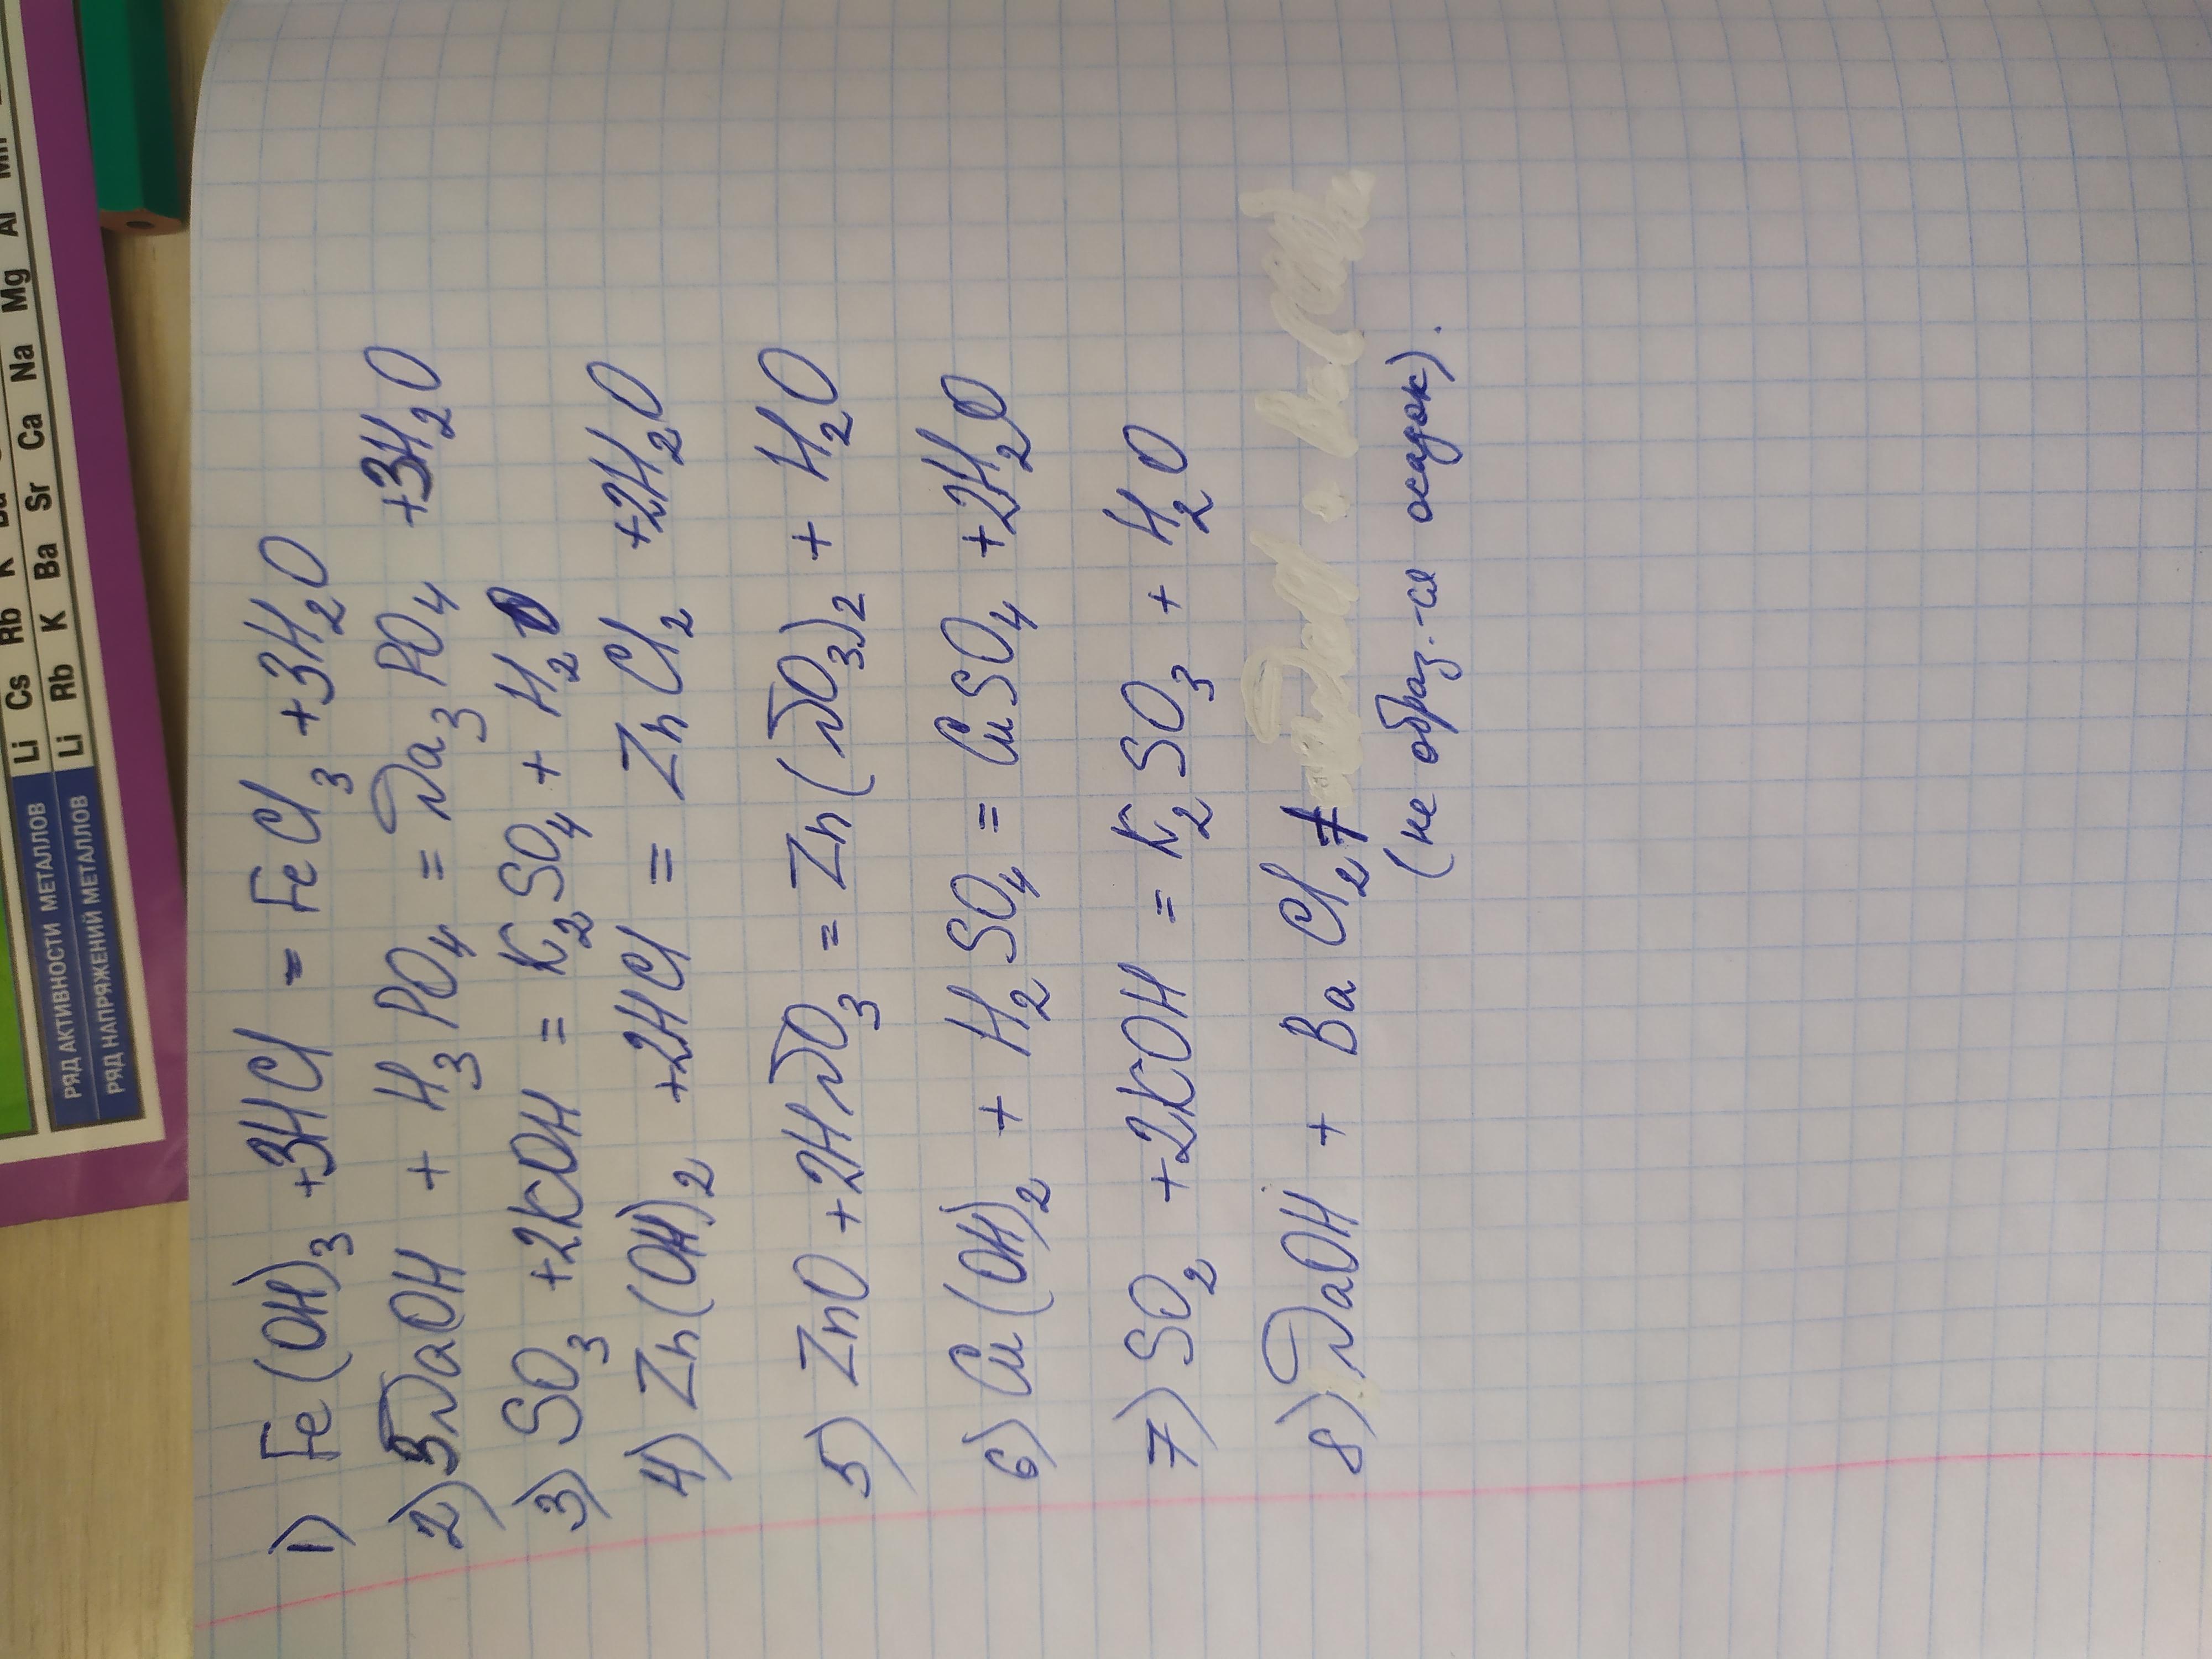 РЯД АКТИВНОСТИ МЕТАЛЛОВ Li Cs Rb K Ba Sr Ca Na Mg Al Mn
РЯД НАПРЯЖЕНИЙ МЕТАЛЛОВ Li Rb K Ba Sr Ca Na Mg Al Mn
1) Fe(OH)₃ +3HCl = FeCl₃ +3H₂O
2) 3NaOH + H₃PO₄ = Na₃PO₄ +3H₂O
3) SO₃ +2KOH = K₂SO₄ + H₂O
4) Zn(OH)₂ +2HCl = ZnCl₂ +2H₂O
5) ZnO +2HNO₃ = Zn(NO₃)₂ + H₂O
6) Cu(OH)₂ + H₂SO₄ = CuSO₄ +2H₂O
7) SO₂ +2KOH = K₂SO₃ + H₂O
8) NaOH + BaCl₂ ≠
(не образ-ся осадок).